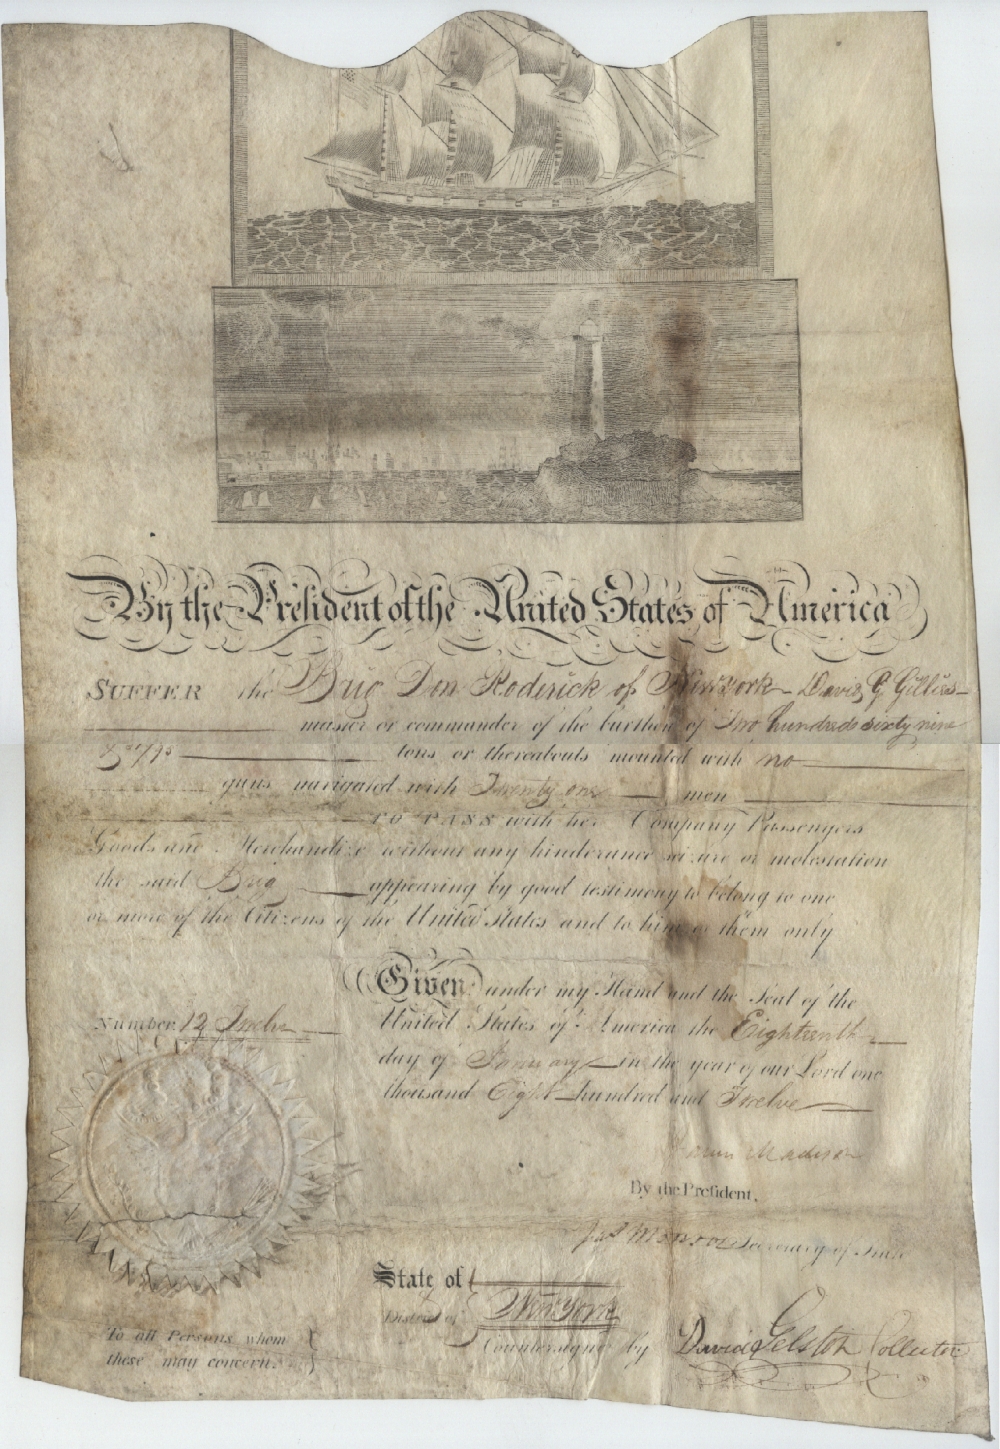 By the President of the United States of America
SUFFER the Brig Don Roderick of New York David G Gillies
master or commander of the burthen of Two hundred sixty nine
tons or thereabouts mounted with no
guns navigated with Twenty one men
TO PASS with her Company Passengers
Goods and Merchandize without any hinderance seizure or molestation
the said Brig appearing by good testimony to belong to one
or more of the Citizens of the United States and to him or them only
Given under my Hand and the Seal of the
Number 12 Twelve
United States of America the Eighteenth
day of January in the year of our Lord one
thousand Eight hundred and Twelve
James Madison
By the President,
Jas Monroe Secretary of State
State of
District of New York
Countersigned by David Gelston Collector
To all Persons whom
these may concern.